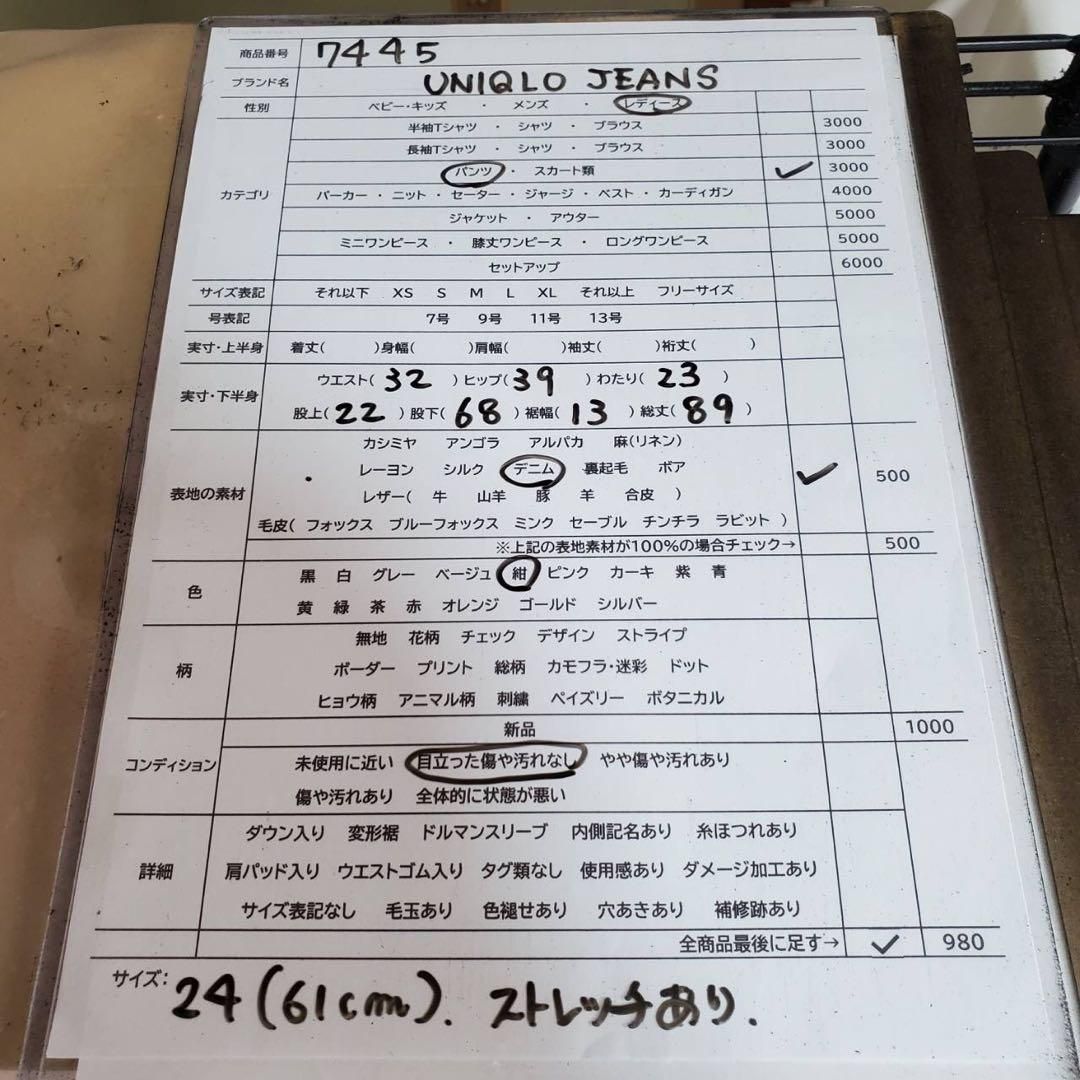 商品番号 7445
ブランド名 UNIQLO JEANS
性別 ベビー・キッズ ・ メンズ ・ レディース
半袖Tシャツ ・ シャツ ・ ブラウス 3000
長袖Tシャツ ・ シャツ ・ ブラウス 3000
パンツ ・ スカート類 ✓ 3000
カテゴリ パーカー ・ ニット ・ セーター ・ ジャージ ・ ベスト ・ カーディガン 4000
ジャケット ・ アウター 5000
ミニワンピース ・ 膝丈ワンピース ・ ロングワンピース 5000
セットアップ 6000
サイズ表記 それ以下 XS S M L XL それ以上 フリーサイズ
号表記 7号 9号 11号 13号
実寸・上半身 着丈( )身幅( )肩幅( )袖丈( )裄丈( )
実寸・下半身 ウエスト( 32 )ヒップ( 39 )わたり( 23 )
股上( 22 )股下( 68 )裾幅( 13 )総丈( 89 )
カシミヤ アンゴラ アルパカ 麻(リネン)
レーヨン シルク デニム 裏起毛 ボア ✓ 500
表地の素材 レザー( 牛 山羊 豚 羊 合皮 )
毛皮( フォックス ブルーフォックス ミンク セーブル チンチラ ラビット )
※上記の表地素材が100%の場合チェック→ 500
色 黒 白 グレー ベージュ 紺 ピンク カーキ 紫 青
黄 緑 茶 赤 オレンジ ゴールド シルバー
無地 花柄 チェック デザイン ストライプ
柄 ボーダー プリント 総柄 カモフラ・迷彩 ドット
ヒョウ柄 アニマル柄 刺繍 ペイズリー ボタニカル
新品 1000
コンディション 未使用に近い 目立った傷や汚れなし やや傷や汚れあり
傷や汚れあり 全体的に状態が悪い
ダウン入り 変形裾 ドルマンスリーブ 内側記名あり 糸ほつれあり
詳細 肩パッド入り ウエストゴム入り タグ類なし 使用感あり ダメージ加工あり
サイズ表記なし 毛玉あり 色褪せあり 穴あきあり 補修跡あり
全商品最後に足す→ ✓ 980
サイズ: 24(61cm). ストレッチあり.